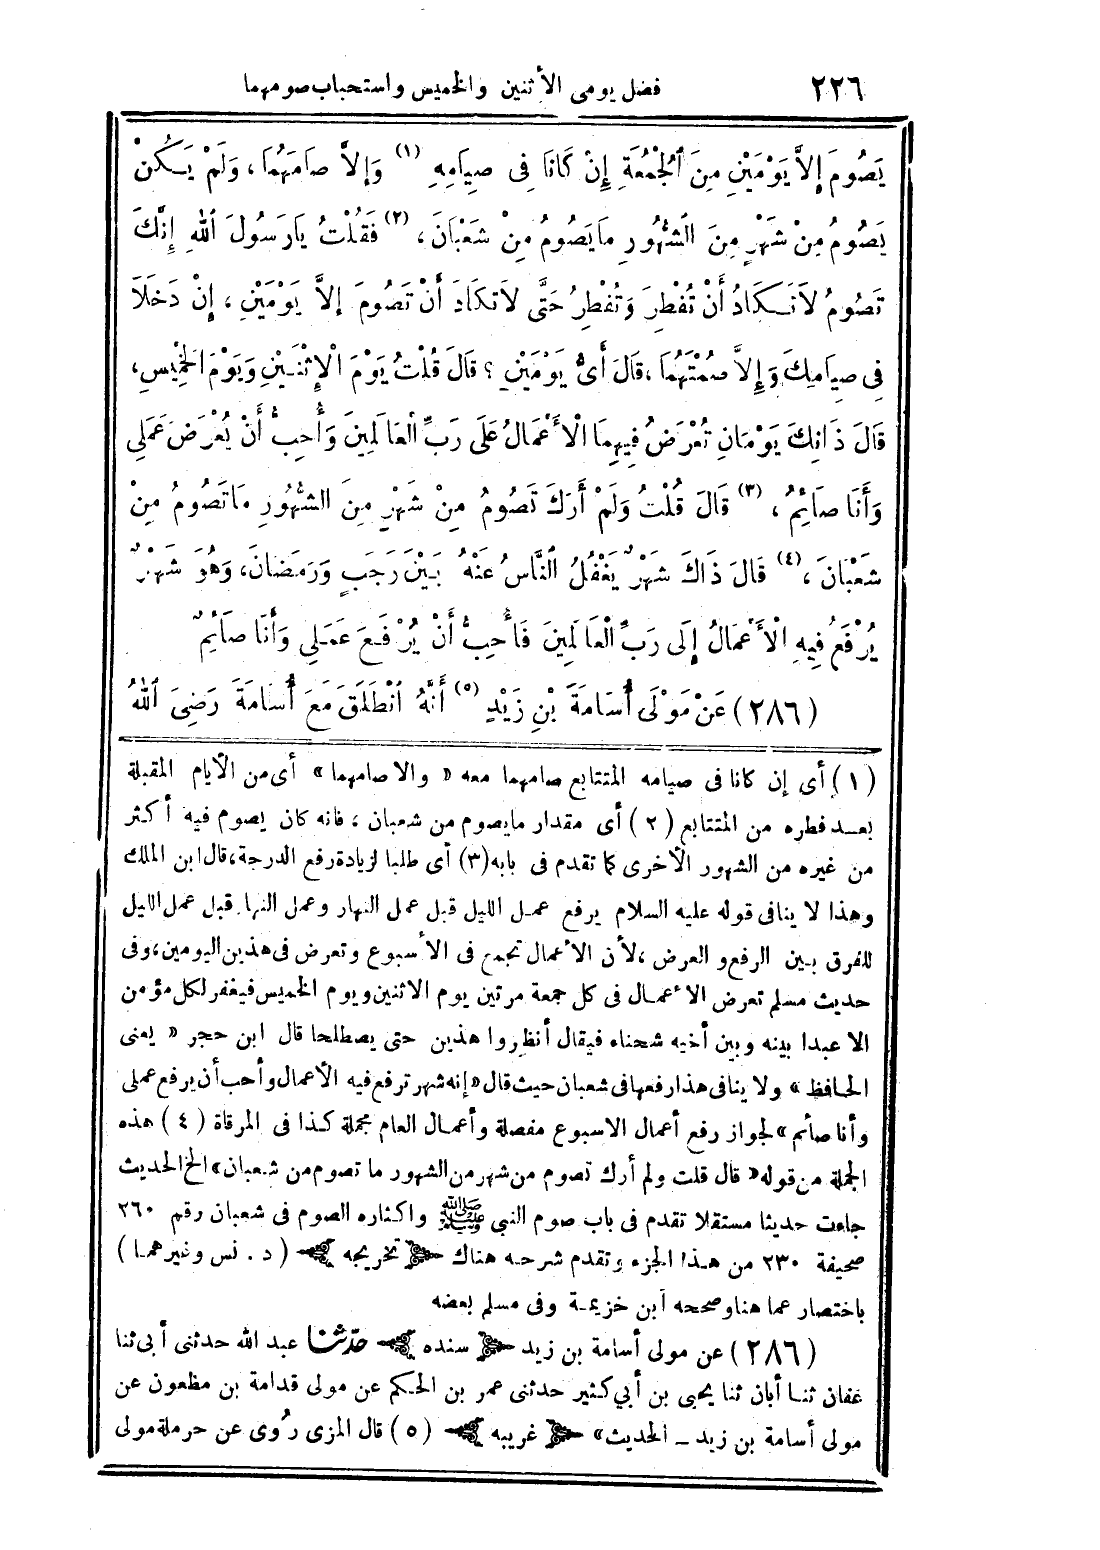 ٢٢٦ فضل يومى الأثنين والخميس واستحباب صومهما
يَصُومَ إِلاَّ يَوْمَيْنِ مِنَ ٱلْجُمُعَةِ إِنْ كَانَا فِى صِيَامِهِ (١) وَإِلاَّ صَامَهُمَا، وَلَمْ يَكُنْ
يَصُومُ مِنْ شَهْرٍ مِنَ ٱلشُّهُورِ مَايَصُومُ مِنْ شَعْبَانَ، (٢) فَقُلْتُ يَارَسُولَ ٱللهِ إِنَّكَ
تَصُومُ لَاتَكَادُ أَنْ تُفْطِرَ وَتُفْطِرُ حَتَّى لَاتَكَادَ أَنْ تَصُومَ إلاَّ يَوْمَيْنِ، إِنْ دَخَلَا
فِى صِيَامِكَ وَإِلاَّ صُمْتَهُمَا، قَالَ أَىُّ يَوْمَيْنِ ؟ قَالَ قُلْتُ يَوْمَ الْإِثْنَيْنِ وَيَوْمَ الْخَمِيْسِ،
قَالَ ذَانِكَ يَوْمَانِ تُعْرَضُ فِيهِمَا الْأَعْمَالُ عَلَى رَبِّ الْعَالَمِينَ وَأُحِبُّ أَنْ يُعْرَضَ عَمَلِى
وَأَنَا صَائِمٌ، (٣) قَالَ قُلْتُ وَلَمْ أَرَكَ تَصُومُ مِنْ شَهْرٍ مِنَ الشُّهُورِ مَاتَصُومُ مِنْ
شَعْبَانَ، (٤) قَالَ ذَاكَ شَهْرٌ يَغْفُلُ ٱلنَّاسُ عَنْهُ بَيْنَ رَجَبٍ وَرَمَضَانَ، وَهُوَ شَهْرٌ
يُرْفَعُ فِيهِ الْأَعْمَالُ إِلَى رَبِّ الْعَالَمِينَ فَأُحِبُّ أَنْ يُرْفَعَ عَمَلِى وَأَنَا صَائِمٌ
(٢٨٦) عَنْ مَوْلَى أُسَامَةَ بْنِ زَيْدٍ (٥) أَنَّهُ ٱنْطَلَقَ مَعَ أُسَامَةَ رَضِىَ ٱللهُ
(١) أى إن كانا فى صيامه المتتابع صامهما معه « والا صامهما » أى من الأيام المقبلة
بعد فطره من المتتابع (٢) أى مقدار مايصوم من شعبان، فانه كان يصوم فيه أكثر
من غيره من الشهور الأخرى كما تقدم فى بابه (٣) أى طلبا لزيادة رفع الدرجة، قال ابن الملك
وهذا لا ينافى قوله عليه السلام يرفع عمل الليل قبل عمل النهار وعمل النهار قبل عمل الليل
للفرق بين الرفع والعرض، لأن الأعمال تجمع فى الأسبوع وتعرض فى هذين اليومين، وفى
حديث مسلم تعرض الأعمال فى كل جمعة مرتين يوم الاثنين ويوم الخميس فيغفر لكل مؤمن
الا عبدا بينه وبين أخيه شحناء فيقال أنظروا هذين حتى يصطلحا قال ابن حجر « يعنى
الحافظ » ولا ينافى هذا رفعها فى شعبان حيث قال « إنه شهر ترفع فيه الأعمال وأحب أن يرفع عملى
وأنا صائم » لجواز رفع أعمال الاسبوع مفصلة وأعمال العام مجملة كذا فى المرقاة (٤) هذه
الجملة من قوله « قال قلت ولم أرك تصوم من شهر من الشهور ما تصوم من شعبان » الخ الحديث
جاءت حديثا مستقلا تقدم فى باب صوم النبى ﷺ واكثاره الصوم فى شعبان رقم ٢٦٠
صحيفة ٢٣٠ من هذا الجزء وتقدم شرحه هناك تخريجه (د . نس وغيرهما)
باختصار عما هنا وصححه ابن خزيمة وفى مسلم بعضه
(٢٨٦) عن مولى أسامة بن زيد سنده حدثنا عبد الله حدثنى أبى ثنا
عفان ثنا أبان ثنا يحيى بن أبي كثير حدثنى عمر بن الحكم عن مولى قدامة بن مظعون عن
مولى أسامة بن زيد ــ الحديث » غريبه (٥) قال المزى رُوى عن حرملة مولى